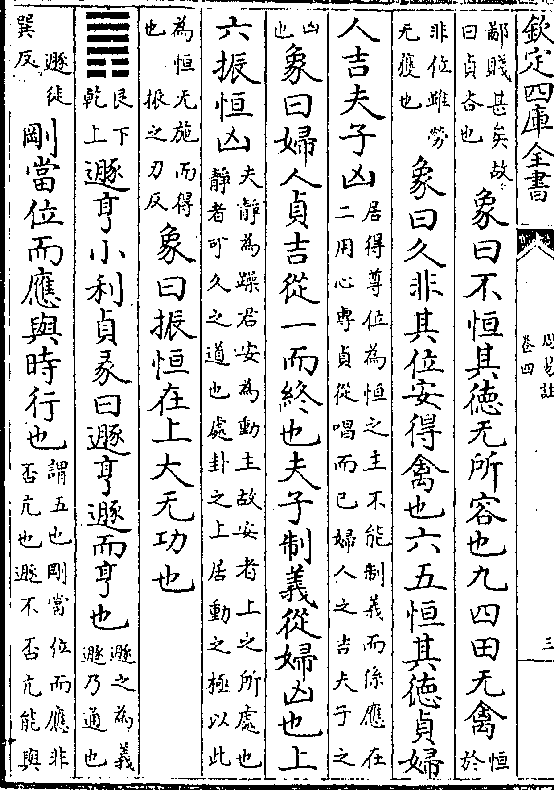 欽定四庫全書
周易註
卷四
三
鄙賤甚矣故
曰貞吝也
象曰不恒其德无所容也九四田无禽
恒
於
非位雖勞
无獲也
象曰久非其位安得禽也六五恒其德貞婦
人吉夫子凶
居得尊位為恒之主不能制義而係應在
二用心專貞從唱而已婦人之吉夫子之
凶
也
象曰婦人貞吉從一而終也夫子制義從婦凶也上
六振恒凶
夫靜為躁君安為動主故安者上之所處也
靜者可久之道也處卦之上居動之極以此
為恒无施而得
也 振之刃反
象曰振恒在上大无功也
䷠
艮下
乾上
遯亨小利貞彖曰遯亨遯而亨也
遯之為義
遯乃通也
遯徒
巽反
剛當位而應與時行也
謂五也剛當位而應非
否亢也遯不否亢能與